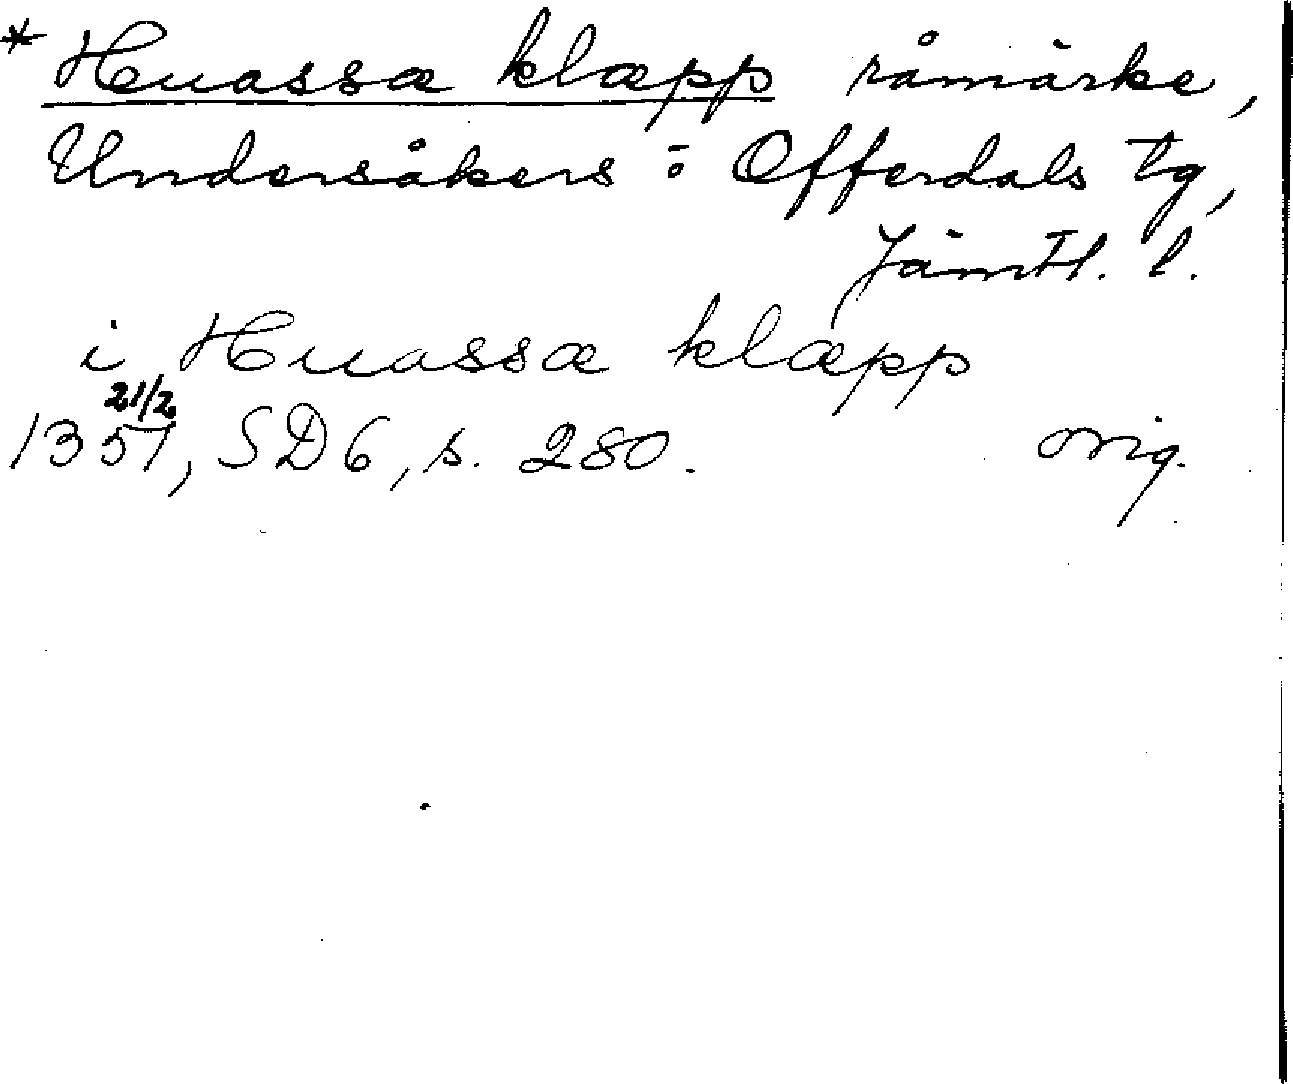 * Huassæ klæpp råmärke,
Undersåkers o. Offerdals tg,
Jämtl. l.
i Huassæ klæpp
21/2
1357, SD 6, s. 280. orig.